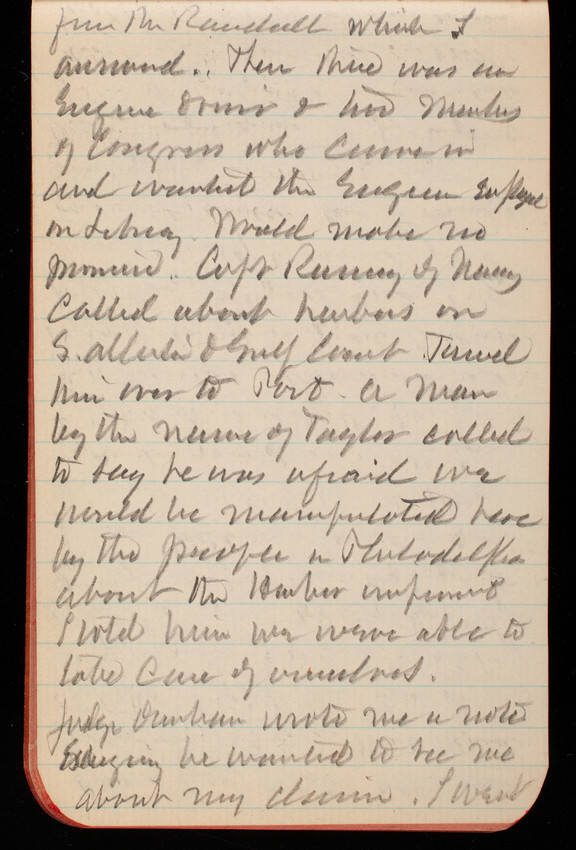 from Mr Randall which I
answered.. Then there was an
Engineer & two Members
of Congress who came in
and wanted the Engineer
on Library. Would make no
promise. Capt of Navy
Called about harbors on
S. Atlantic & Gulf Coast. Turned
him over to Post. A man
by the name of Taylor called
to say he was afraid we
would be manipulated here
by the people in Philadelphia
about the Harbor improvmt
I told him we were able to
take care of ourselves.
Judge Dunham wrote me a note
saying he wanted to see me
about my claim. I went